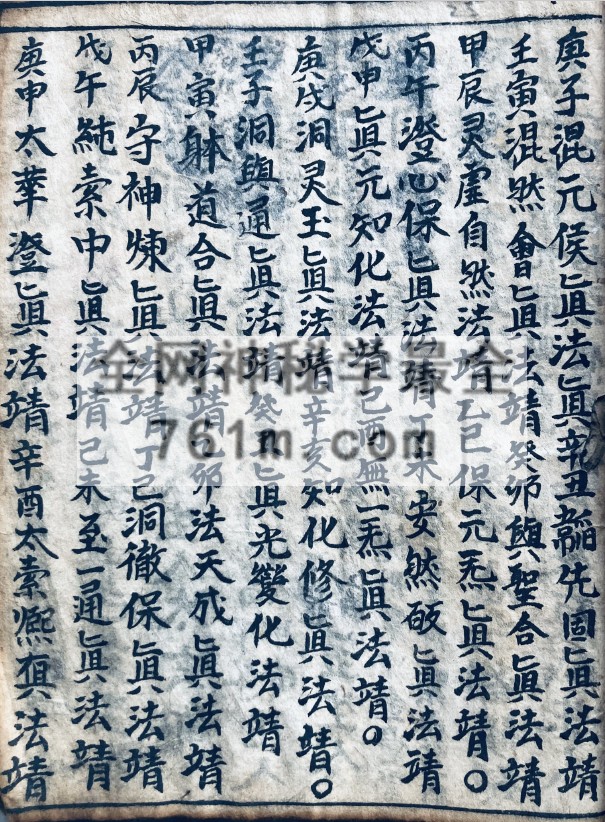 庚子混元侯真法真辛丑韜先固真法靖
壬寅混然會真法靖癸卯與聖合真法靖
甲辰灵虛自然法靖乙巳保元炁真法靖。
丙午澄心保真法靖丁未安然破真法靖
戊申真元知化法靖己酉無一炁真法靖。
庚戌洞灵玉真法靖辛亥知化修真法靖。
壬子洞與通真法靖癸丑真光變化法靖
甲寅躰道合真法靖乙卯法天成真法靖
丙辰守神煉真法靖丁巳洞徹保真法靖
戊午純素中真法靖己未至一通真法靖
庚申太華澄真法靖辛酉太素熈真法靖
全网神秘学最全
761m.com